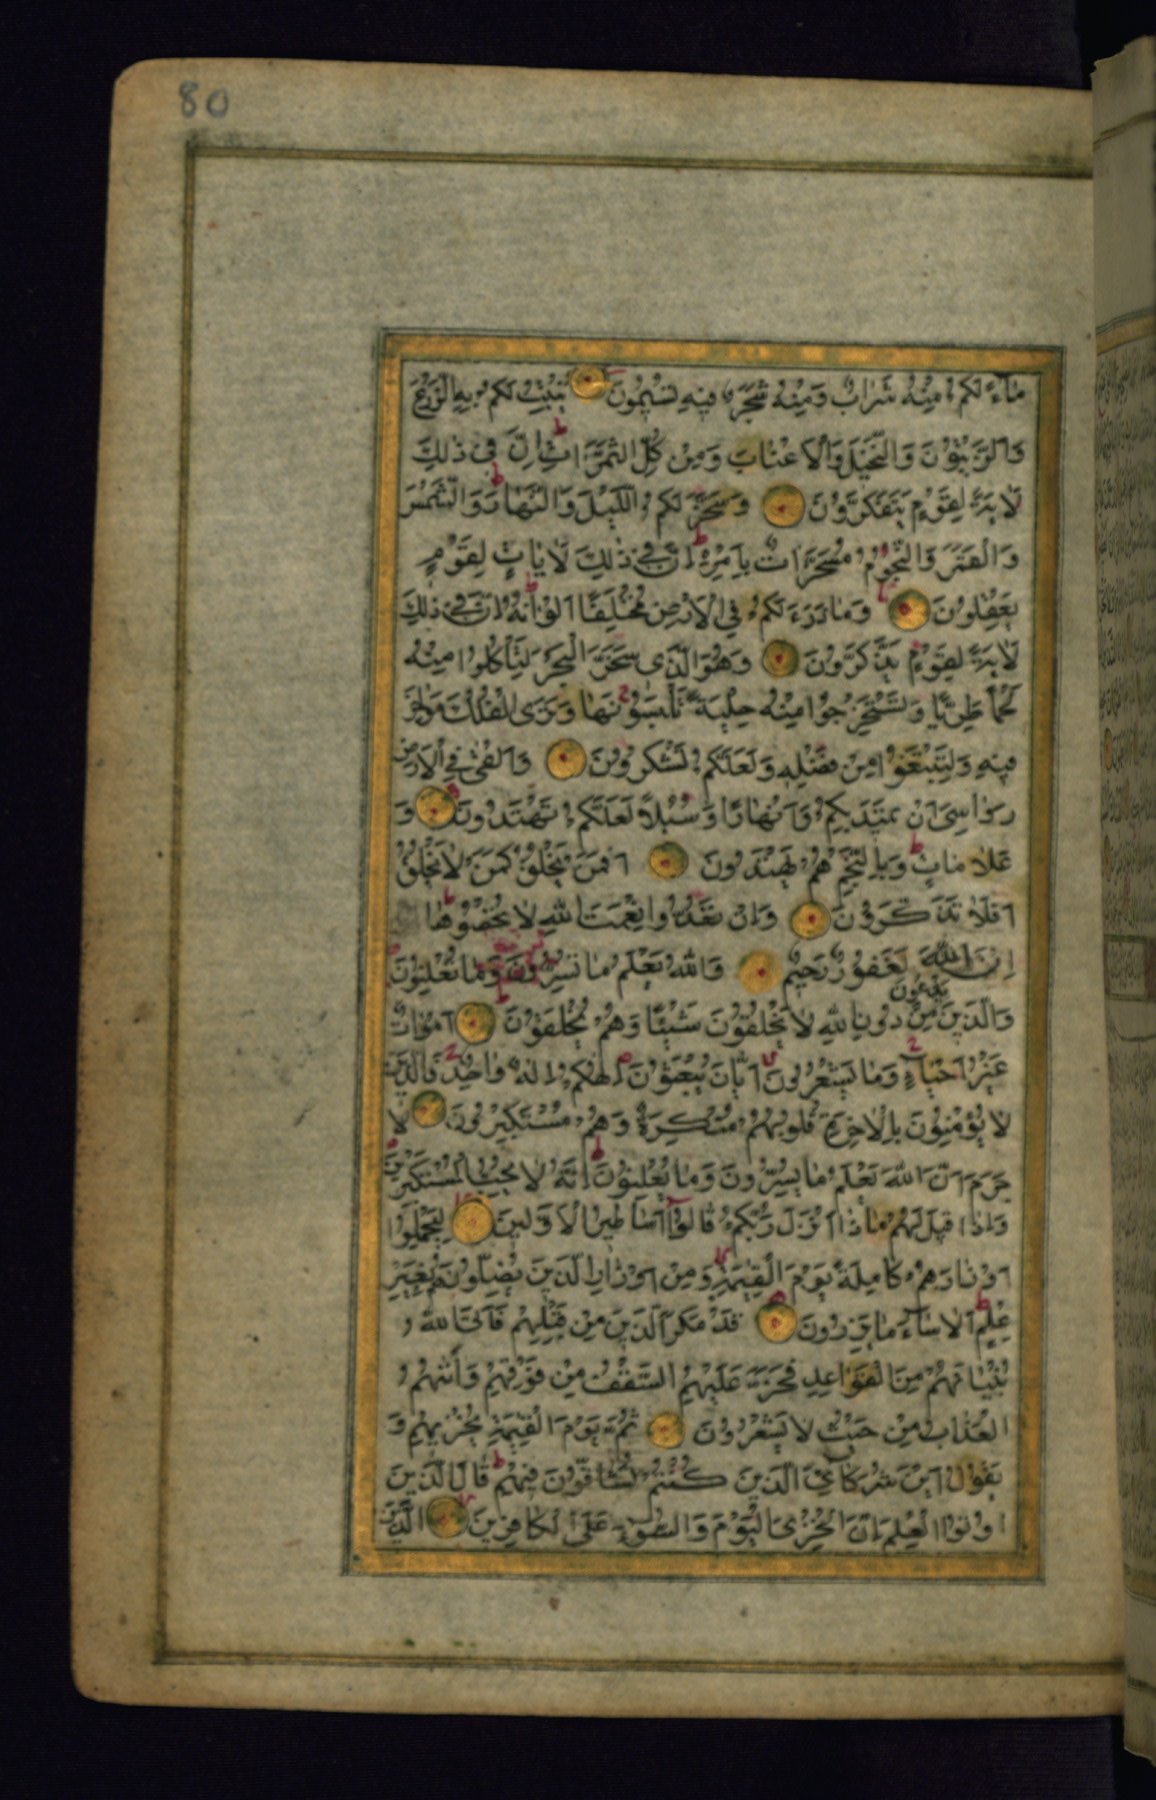 80
مَآءً لَكُمْ مِنْهُ شَرَابٌ وَمِنْهُ شَجَرٌ فِيهِ تُسِيمُونَ يُنْبِتُ لَكُمْ بِهِ الزَّرْعَ
وَالزَّيْتُونَ وَالنَّخِيلَ وَالْاَعْنَابَ وَمِنْ كُلِّ الثَّمَرَاتِ اِنَّ فِى ذٰلِكَ
لَاٰيَةً لِقَوْمٍ يَتَفَكَّرُونَ وَسَخَّرَ لَكُمُ الَّيْلَ وَالنَّهَارَ وَالشَّمْسَ
وَالْقَمَرَ وَالنُّجُومُ مُسَخَّرَاتٌ بِاَمْرِهِ اِنَّ فِى ذٰلِكَ لَاٰيَاتٍ لِقَوْمٍ
يَعْقِلُونَ وَمَا ذَرَءَ لَكُمْ فِى الْاَرْضِ مُخْتَلِفًا اَلْوَانُهُ اِنَّ فِى ذٰلِكَ
لَاٰيَةً لِقَوْمٍ يَذَّكَّرُونَ وَهُوَ الَّذِى سَخَّرَ الْبَحْرَ لِتَاْكُلُوا مِنْهُ
لَحْمًا طَرِيًّا وَتَسْتَخْرِجُوا مِنْهُ حِلْيَةً تَلْبَسُونَهَا وَتَرَى الْفُلْكَ مَوَاخِرَ
فِيهِ وَلِتَبْتَغُوا مِنْ فَضْلِهِ وَلَعَلَّكُمْ تَشْكُرُونَ وَاَلْقٰى فِى الْاَرْضِ
رَوَاسِىَ اَنْ تَمِيدَ بِكُمْ وَاَنْهَارًا وَسُبُلًا لَعَلَّكُمْ تَهْتَدُونَ وَ
عَلَامَاتٍ وَبِالنَّجْمِ هُمْ يَهْتَدُونَ اَفَمَنْ يَخْلُقُ كَمَنْ لَا يَخْلُقُ
اَفَلَا تَذَكَّرُونَ وَاِنْ تَعُدُّوا نِعْمَتَ اللّٰهِ لَا تُحْصُوهَا
اِنَّ اللّٰهَ لَغَفُورٌ رَحِيمٌ وَاللّٰهُ يَعْلَمُ مَا تُسِرُّونَ وَمَا تُعْلِنُونَ
وَالَّذِينَ يَدْعُونَ مِنْ دُونِ اللّٰهِ لَا يَخْلُقُونَ شَيْئًا وَهُمْ يُخْلَقُونَ اَمْوَاتٌ
غَيْرُ اَحْيَآءٍ وَمَا يَشْعُرُونَ اَيَّانَ يُبْعَثُونَ اِلٰهُكُمْ اِلٰهٌ وَاحِدٌ فَالَّذِينَ
لَا يُؤْمِنُونَ بِالْاٰخِرَةِ قُلُوبُهُمْ مُنْكِرَةٌ وَهُمْ مُسْتَكْبِرُونَ لَا
جَرَمَ اَنَّ اللّٰهَ يَعْلَمُ مَا يُسِرُّونَ وَمَا يُعْلِنُونَ اِنَّهُ لَا يُحِبُّ الْمُسْتَكْبِرِينَ
وَاِذَا قِيلَ لَهُمْ مَاذَا اَنْزَلَ رَبُّكُمْ قَالُوا اَسَاطِيرُ الْاَوَّلِينَ لِيَحْمِلُوا
اَوْزَارَهُمْ كَامِلَةً يَوْمَ الْقِيٰمَةِ وَمِنْ اَوْزَارِ الَّذِينَ يُضِلُّونَهُمْ بِغَيْرِ
عِلْمٍ اَلَا سَآءَ مَا يَزِرُونَ قَدْ مَكَرَ الَّذِينَ مِنْ قَبْلِهِمْ فَاَتَى اللّٰهُ
بُنْيَانَهُمْ مِنَ الْقَوَاعِدِ فَخَرَّ عَلَيْهِمُ السَّقْفُ مِنْ فَوْقِهِمْ وَاَتٰيهُمُ
الْعَذَابُ مِنْ حَيْثُ لَا يَشْعُرُونَ ثُمَّ يَوْمَ الْقِيٰمَةِ يُخْزِيهِمْ وَ
يَقُولُ اَيْنَ شُرَكَآءِىَ الَّذِينَ كُنْتُمْ تُشَاقُّونَ فِيهِمْ قَالَ الَّذِينَ
اُوتُوا الْعِلْمَ اِنَّ الْخِزْىَ الْيَوْمَ وَالسُّوٓءَ عَلَى الْكَافِرِينَ الَّذِينَ